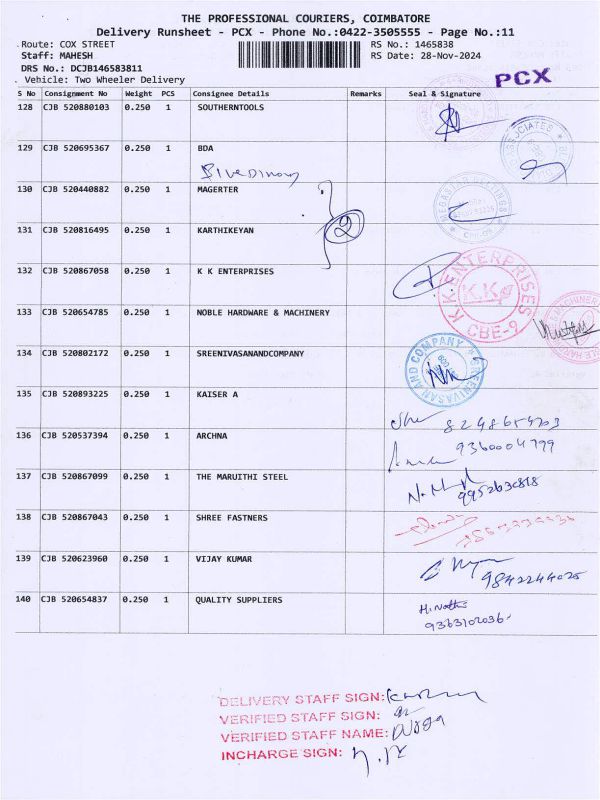 THE PROFESSIONAL COURIERS, COIMBATORE
Delivery Runsheet - PCX - Phone No.:0422-3505555 - Page No.:11
Route: COX STREET RS No.: 1465838
Staff: MAHESH RS Date: 28-Nov-2024
DRS No.: DCJB146583811
Vehicle: Two Wheeler Delivery PCX
S No Consignment No Weight PCS Consignee Details Remarks Seal & Signature
128 CJB 520880103 0.250 1 SOUTHERNTOOLS
129 CJB 520695367 0.250 1 BDA
ASSOCIATES
130 CJB 520440882 0.250 1 MAGERTER
131 CJB 520816495 0.250 1 KARTHIKEYAN
2
132 CJB 520867058 0.250 1 K K ENTERPRISES
K K ENTERPRISES
K.K
CBE-9
133 CJB 520654785 0.250 1 NOBLE HARDWARE & MACHINERY
134 CJB 520802172 0.250 1 SREENIVASANANDCOMPANY
SREENIVASAN AND COMPANY
135 CJB 520893225 0.250 1 KAISER A
136 CJB 520537394 0.250 1 ARCHNA
9360004799
137 CJB 520867099 0.250 1 THE MARUITHI STEEL
9952630818
138 CJB 520867043 0.250 1 SHREE FASTNERS
139 CJB 520623960 0.250 1 VIJAY KUMAR
9842244025
140 CJB 520654837 0.250 1 QUALITY SUPPLIERS
9363102036
DELIVERY STAFF SIGN:
VERIFIED STAFF SIGN:
VERIFIED STAFF NAME:
INCHARGE SIGN: